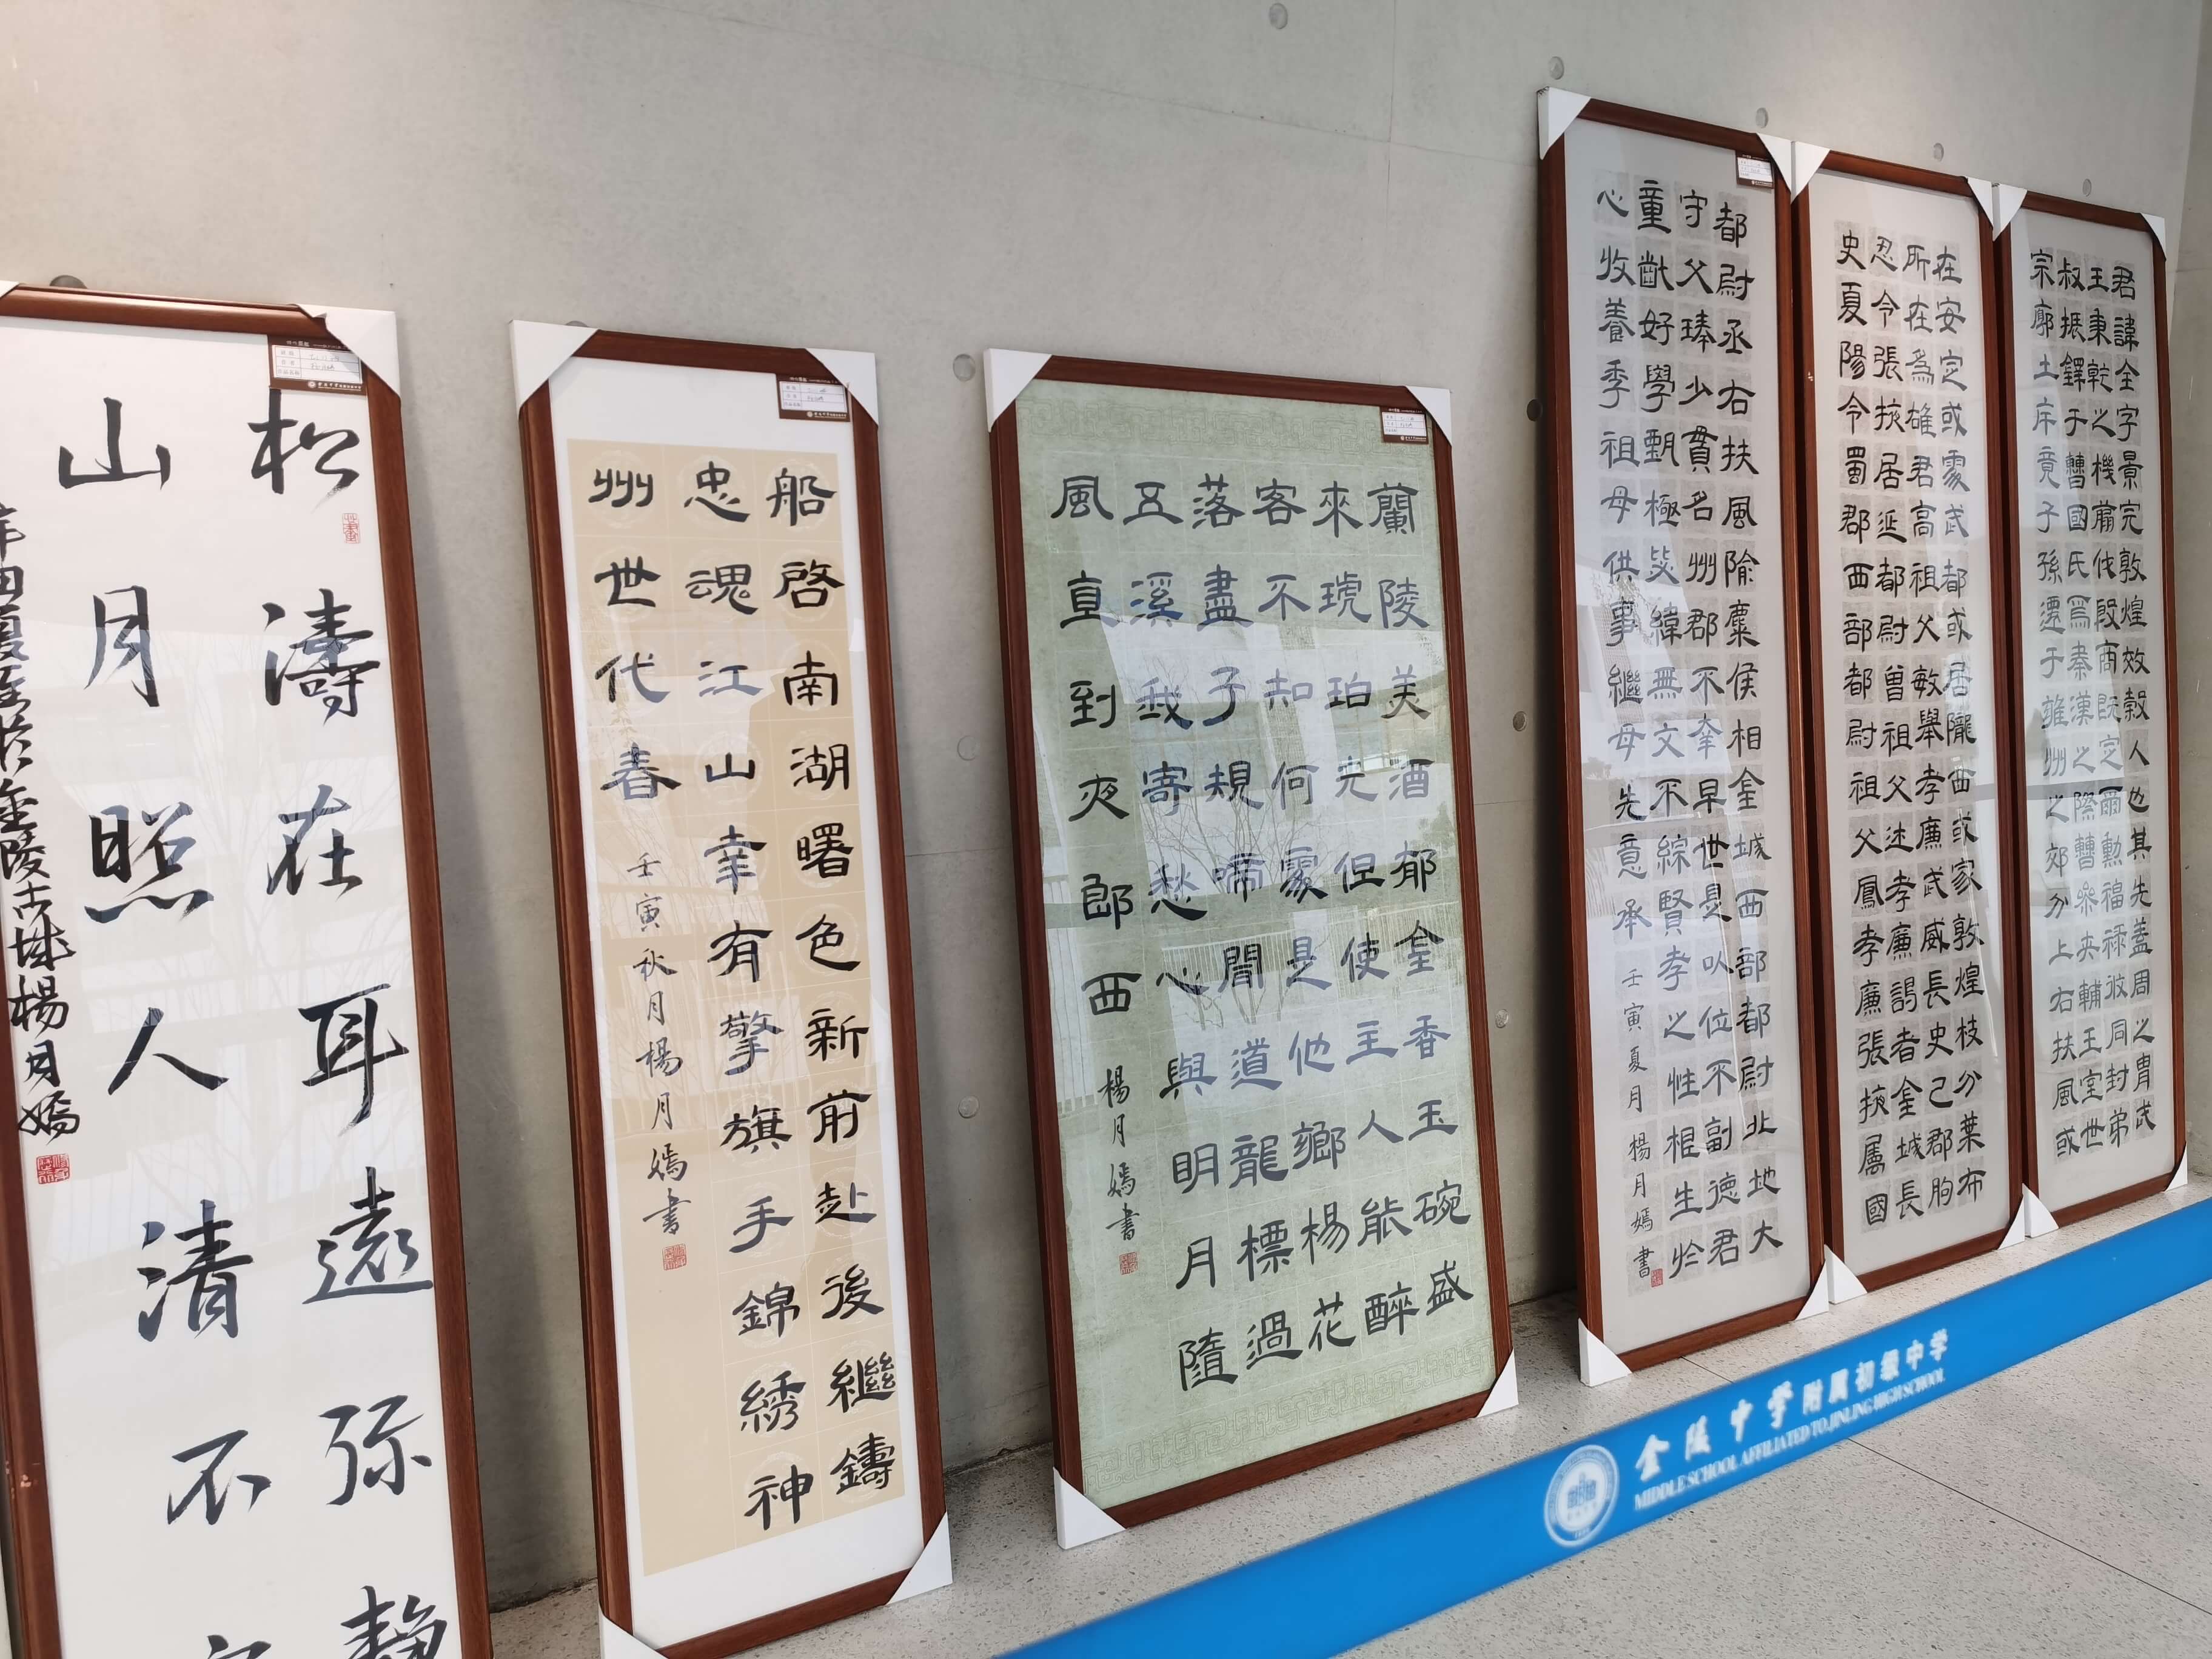 松濤在耳遠弥静
山月照人清不
金陵古城楊月嫣
船啓南湖曙色新前赴後繼鑄
忠魂江山幸有擎旗手錦綉神
州世代春
壬寅秋月楊月嫣書
蘭陵美酒郁金香玉碗盛
來琥珀光但使主人能醉
客不知何處是他鄉楊花
落盡子規啼聞道龍標過
五溪我寄愁心與明月隨
風直到夜郎西
楊月嫣書
君諱全字景完敦煌效穀人也其先蓋周之胄武
王秉乾之機翦伐殷商既定爾勳福祿攸同封弟
叔振鐸于曹國氏焉秦漢之際曹參夾輔王室世
宗廓土斥竟子孫遷于雍州之郊分止右扶風或
在安定或處武都或居隴西或家敦煌枝分葉布
所在為雄君高祖父敏舉孝廉武威長史巴郡朐
忍令張掖居延都尉曾祖父述孝廉謁者金城長
史夏陽令蜀郡西部都尉祖父鳳孝廉張掖屬國
都尉丞右扶風隃麋侯相金城西部都尉北地大
守父琫少貫名州郡不幸早世是以位不副德君
童齔好學甄極毖緯無文不綜賢孝之性根生於
心收養季祖母供事繼母先意承
壬寅夏月楊月嫣書
金陵中学附属初级中学
MIDDLE SCHOOL AFFILIATED TO JINLING HIGH SCHOOL